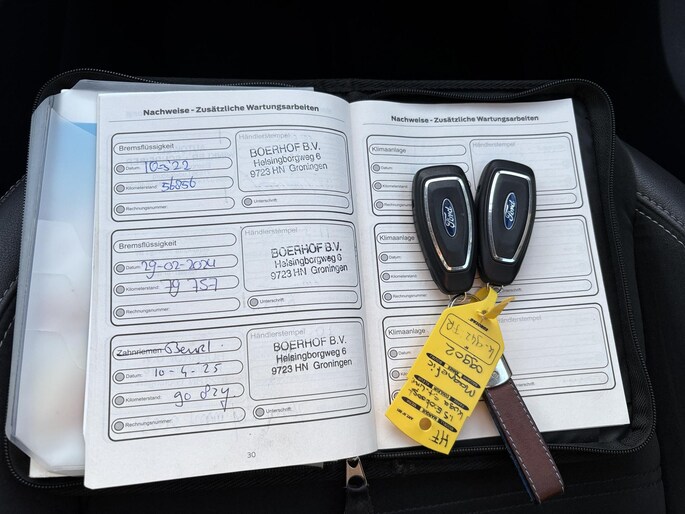 Nachweise - Zusätzliche Wartungsarbeiten
Bremsflüssigkeit
Datum: 10-5-22
Kilometerstand: 56856
Rechnungsnummer:
Händlerstempel
BOERHOF B.V.
Helsingborgweg 6
9723 HN Groningen
Unterschrift
Bremsflüssigkeit
Datum: 29-02-2024
Kilometerstand: 79 757
Rechnungsnummer:
Händlerstempel
BOERHOF B.V.
Helsingborgweg 6
9723 HN Groningen
Unterschrift
Zahnriemen
Datum: 10-4-25
Kilometerstand:
Rechnungsnummer:
Händlerstempel
BOERHOF B.V.
Helsingborgweg 6
9723 HN Groningen
Unterschrift
30
Nachweise - Zusätzliche Wartungsarbeiten
Klimaanlage
Datum:
Kilometerstand:
Rechnungsnummer:
Händlerstempel
Klimaanlage
Datum:
Kilometerstand:
Rechnungsnummer:
Klimaanlage
Ford
Ford
Magnetic
Kuga